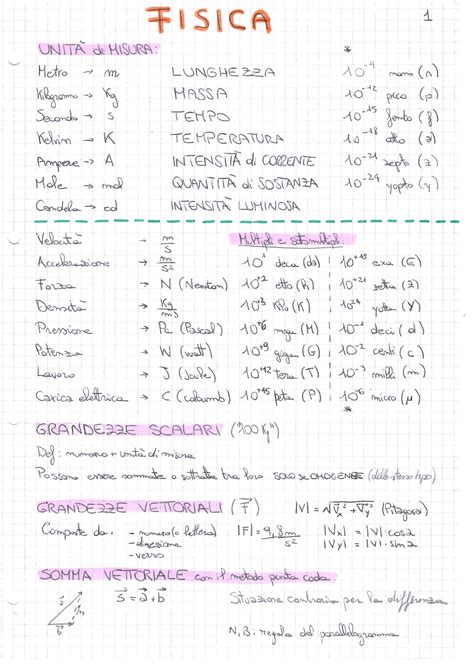 FISICA
1
UNITÀ di MISURA:
*
Metro → m LUNGHEZZA 10⁻⁹ nano (n)
Kilogrammo → Kg MASSA 10⁻¹² pico (p)
Secondo → s TEMPO 10⁻¹⁵ femto (f)
Kelvin → K TEMPERATURA 10⁻¹⁸ atto (a)
Ampere → A INTENSITÀ di CORRENTE 10⁻²¹ zepto (z)
Mole → mol QUANTITÀ di SOSTANZA 10⁻²⁴ yopto (y)
Candela → cd INTENSITÀ LUMINOSA
Velocità → m/s Multipli e sottomultipli:
Accelerazione → m/s² 10¹ deca (da) 10⁺¹⁸ exa (E)
Forza → N (Newton) 10⁺² etto (h) 10⁺²¹ zetta (Z)
Densità → Kg/m³ 10⁺³ Kilo (K) 10²⁴ yotta (Y)
Pressione → Pa (Pascal) 10⁺⁶ mega (M) 10⁻¹ deci (d)
Potenza → W (watt) 10⁺⁹ giga (G) 10⁻² centi (c)
Lavoro → J (Joule) 10⁺¹² tera (T) 10⁻³ milli (m)
Carica elettrica → C (coulomb) 10⁺¹⁵ peta (P) 10⁻⁶ micro (μ)
*
GRANDEZZE SCALARI ("100 Kg")
Def: numero + unità di misura
Possono essere sommate o sottratte tra loro SOLO SE OMOGENEE (dello stesso tipo)
GRANDEZZE VETTORIALI (F⃗) |V| = √Vx² + Vy² (Pitagora)
Composte da: - numero (o lettera) |F| = 9,8 m/s² |Vx| = |V| · cos α
- direzione |Vy| = |V| · sin α
- verso
SOMMA VETTORIALE con il metodo punta coda
s⃗ = a⃗ + b⃗ Situazione contraria per la differenza
N.B: regola del parallelogramma